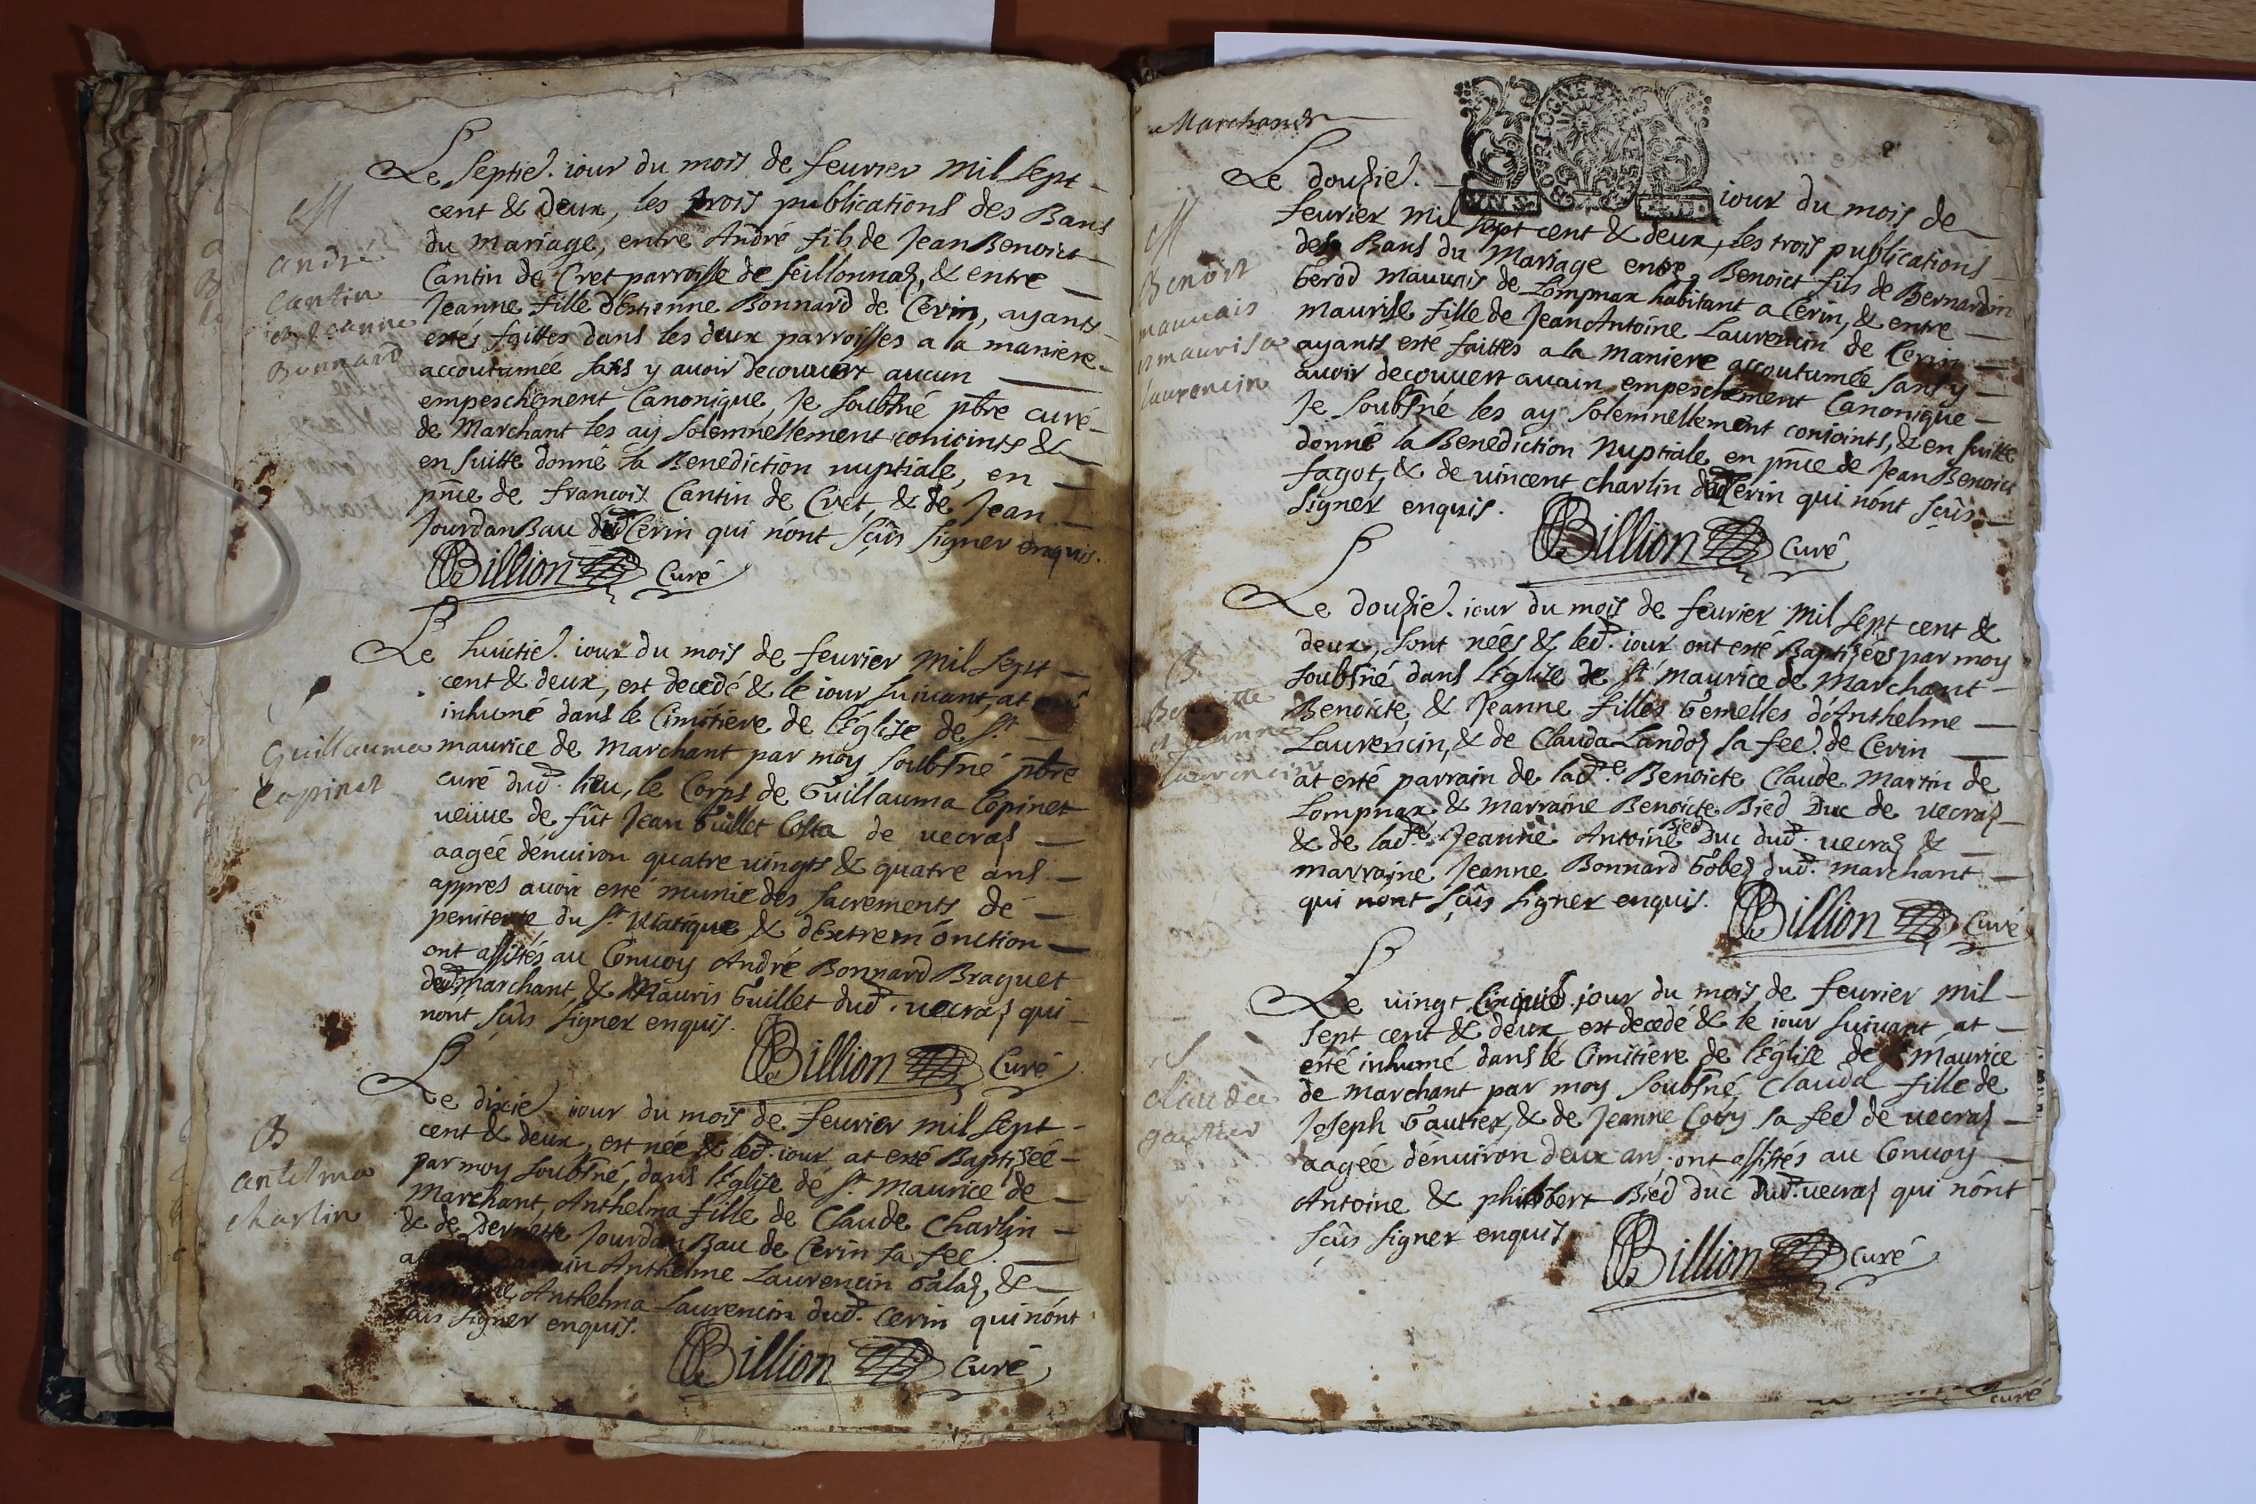 Le septie. iour du mois de feurier mil sept
cent & deux, les trois publications des Bans
du mariage, entre André fils de Jean Benoict
Cantin de Cret parroisse de seillonnaz, & entre
Jeanne fille d'Estienne Bonnard de Cerin, ayants
estés faittes dans les deux parroisses a la maniere
accoutumée sans y auoir decouuert aucun
empeschement Canonique, Je soubsné pbre curé
de Marchant les ay solemnellement conioints &
en suitte donné la Benediction nuptiale, en
pnce de francois Cantin de Cret, & de Jean
Jourdan Bau dud Cerin qui n'ont sçûs signer enquis.
Billion Curé
M
andré
Cantin
et Jeanne
Bonnard
Le huictie. iour du mois de feurier mil sept
cent & deux, est decedé & le iour suiuant, at esté
inhumé dans le Cimitiere de l'Église de St
maurice de marchant par moy soubsné pbre
curé dud. lieu, le Corps de Guillauma Copinet
ueüue de fût Jean Guillet Costa de uecraz
aagée d'enuiron quatre uingts & quatre ans
appres auoir esté munie des sacrements de
penitence du St Uiatique & d'Extrem onction
ont assistés au Conuoy André Bonnard Braguet
dud. marchant & Mauris Guillet dud. uecraz qui
nont sçûs signer enquis.
Billion Curé
Guillauma
Copinet
Le dixie. iour du mois de feurier mil sept
cent & deux, est née & led. iour at esté Baptisée
par moy soubsné, dans l'Église de St. Maurice de
Marchant, Anthelma fille de Claude Charlin
& de Jourdan Bau de Cerin sa fee.
at parrain Anthelme Laurencin Galaz, &
Anthelma Laurencin dud. Cerin qui n'ont
sçûs signer enquis.
Billion Curé
B
antelma
charlin
Marchand
Le douzie. iour du mois de
feurier mil sept cent & deux, les trois publications
des Bans du Mariage entre Benoict fils de Bernardin
Gerod mauuais de Lompnax habitant a Cerin, & entre
maurise fille de Jean Antoine Laurencin de Cerin
ayants esté faittes a la maniere accoutumée sans y
auoir decouuert aucun empeschement Canonique
Je soubsné les ay solemnellement conioints, & en suitte
donné la Benediction Nuptiale en pnce de Jean Benoict
fagot, & de uincent charlin dud Cerin qui nont sçûs
signer enquis.
Billion Curé
M
Benoit
mauuais
et maurisa
laurencin
Le douzie. iour du mois de feurier mil sept cent &
deux, sont nées & led. iour ont esté Baptisées par moy
soubsné dans l'Église de St maurice de Marchant
Benoicte & Jeanne filles Gemelles d'Anthelme
Laurencin, & de Clauda Landoz sa fee. de Cerin
at esté parrain de lad.e Benoicte Claude Martin de
Lompnax & marraine Benoicte Bied Duc de uecraz
& de lad.e Jeanne Antoine Bied Duc dud. uecraz &
marraine Jeanne Bonnard Gobez dud. marchant
qui nont sçûs signer enquis.
Billion Curé
B
Benoitte
et Jeanne
laurencin
Le uingt cinquie. jour du mois de feurier mil
sept cent & deux est decedé & le iour suiuant at
esté inhumé dans le Cimitiere de l'Église de St Maurice
de marchant par moy soubsné, Clauda fille de
Joseph Gautier, & de Jeanne Cosy sa fee de uecraz
aagée d'enuiron deux ans, ont assistés au Conuoy
Antoine & philibert Bied duc dud. uecraz qui n'ont
sçûs signer enquis.
Billion Curé
Clauda
gautier
curé